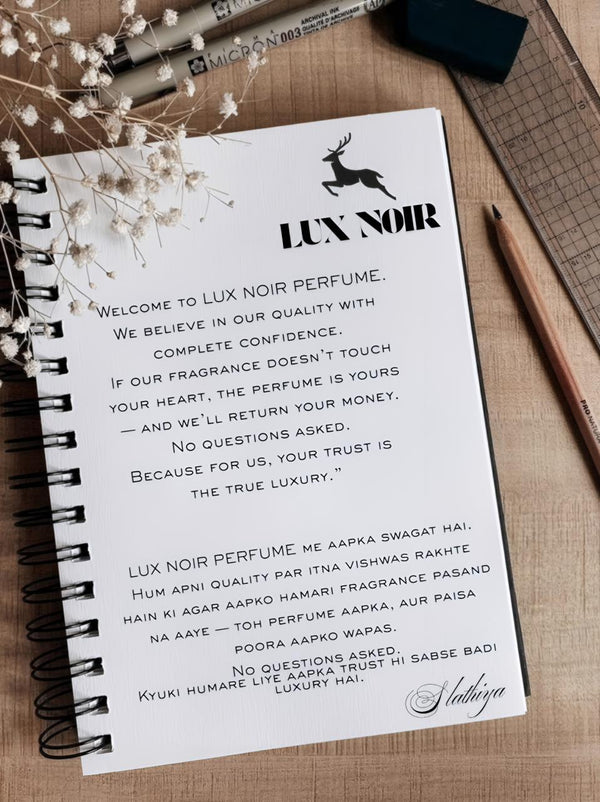 MICRON
MICRON 003 ARCHIVAL INK
LUX NOIR
WELCOME TO LUX NOIR PERFUME.
WE BELIEVE IN OUR QUALITY WITH
COMPLETE CONFIDENCE.
IF OUR FRAGRANCE DOESN'T TOUCH
YOUR HEART, THE PERFUME IS YOURS
— AND WE'LL RETURN YOUR MONEY.
NO QUESTIONS ASKED.
BECAUSE FOR US, YOUR TRUST IS
THE TRUE LUXURY.”
LUX NOIR PERFUME ME AAPKA SWAGAT HAI.
HUM APNI QUALITY PAR ITNA VISHWAS RAKHTE
HAIN KI AGAR AAPKO HAMARI FRAGRANCE PASAND
NA AAYE — TOH PERFUME AAPKA, AUR PAISA
POORA AAPKO WAPAS.
NO QUESTIONS ASKED.
KYUKI HUMARE LIYE AAPKA TRUST HI SABSE BADI
LUXURY HAI.
Slathiya